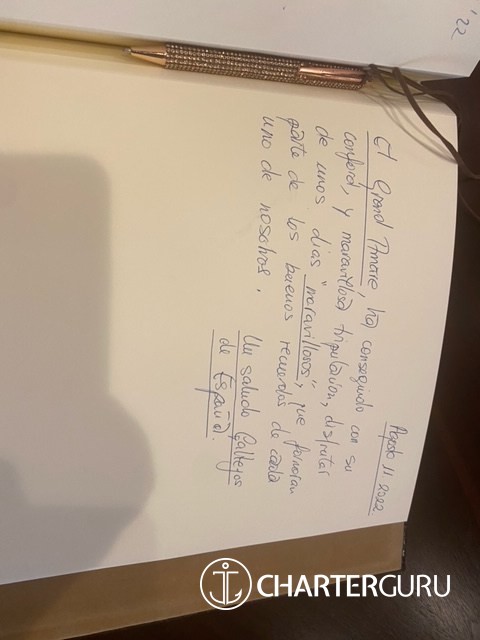 '22
Agosto 11 2022
El Grand Amore, ha conseguido con su
confort, y maravillosa tripulación, disfrutar
de unos dias "maravillosos", que formaran
parte de los buenos recuerdos de cada
uno de nosotros.
Un saludo Gallegos
de España.
CHARTERGURU